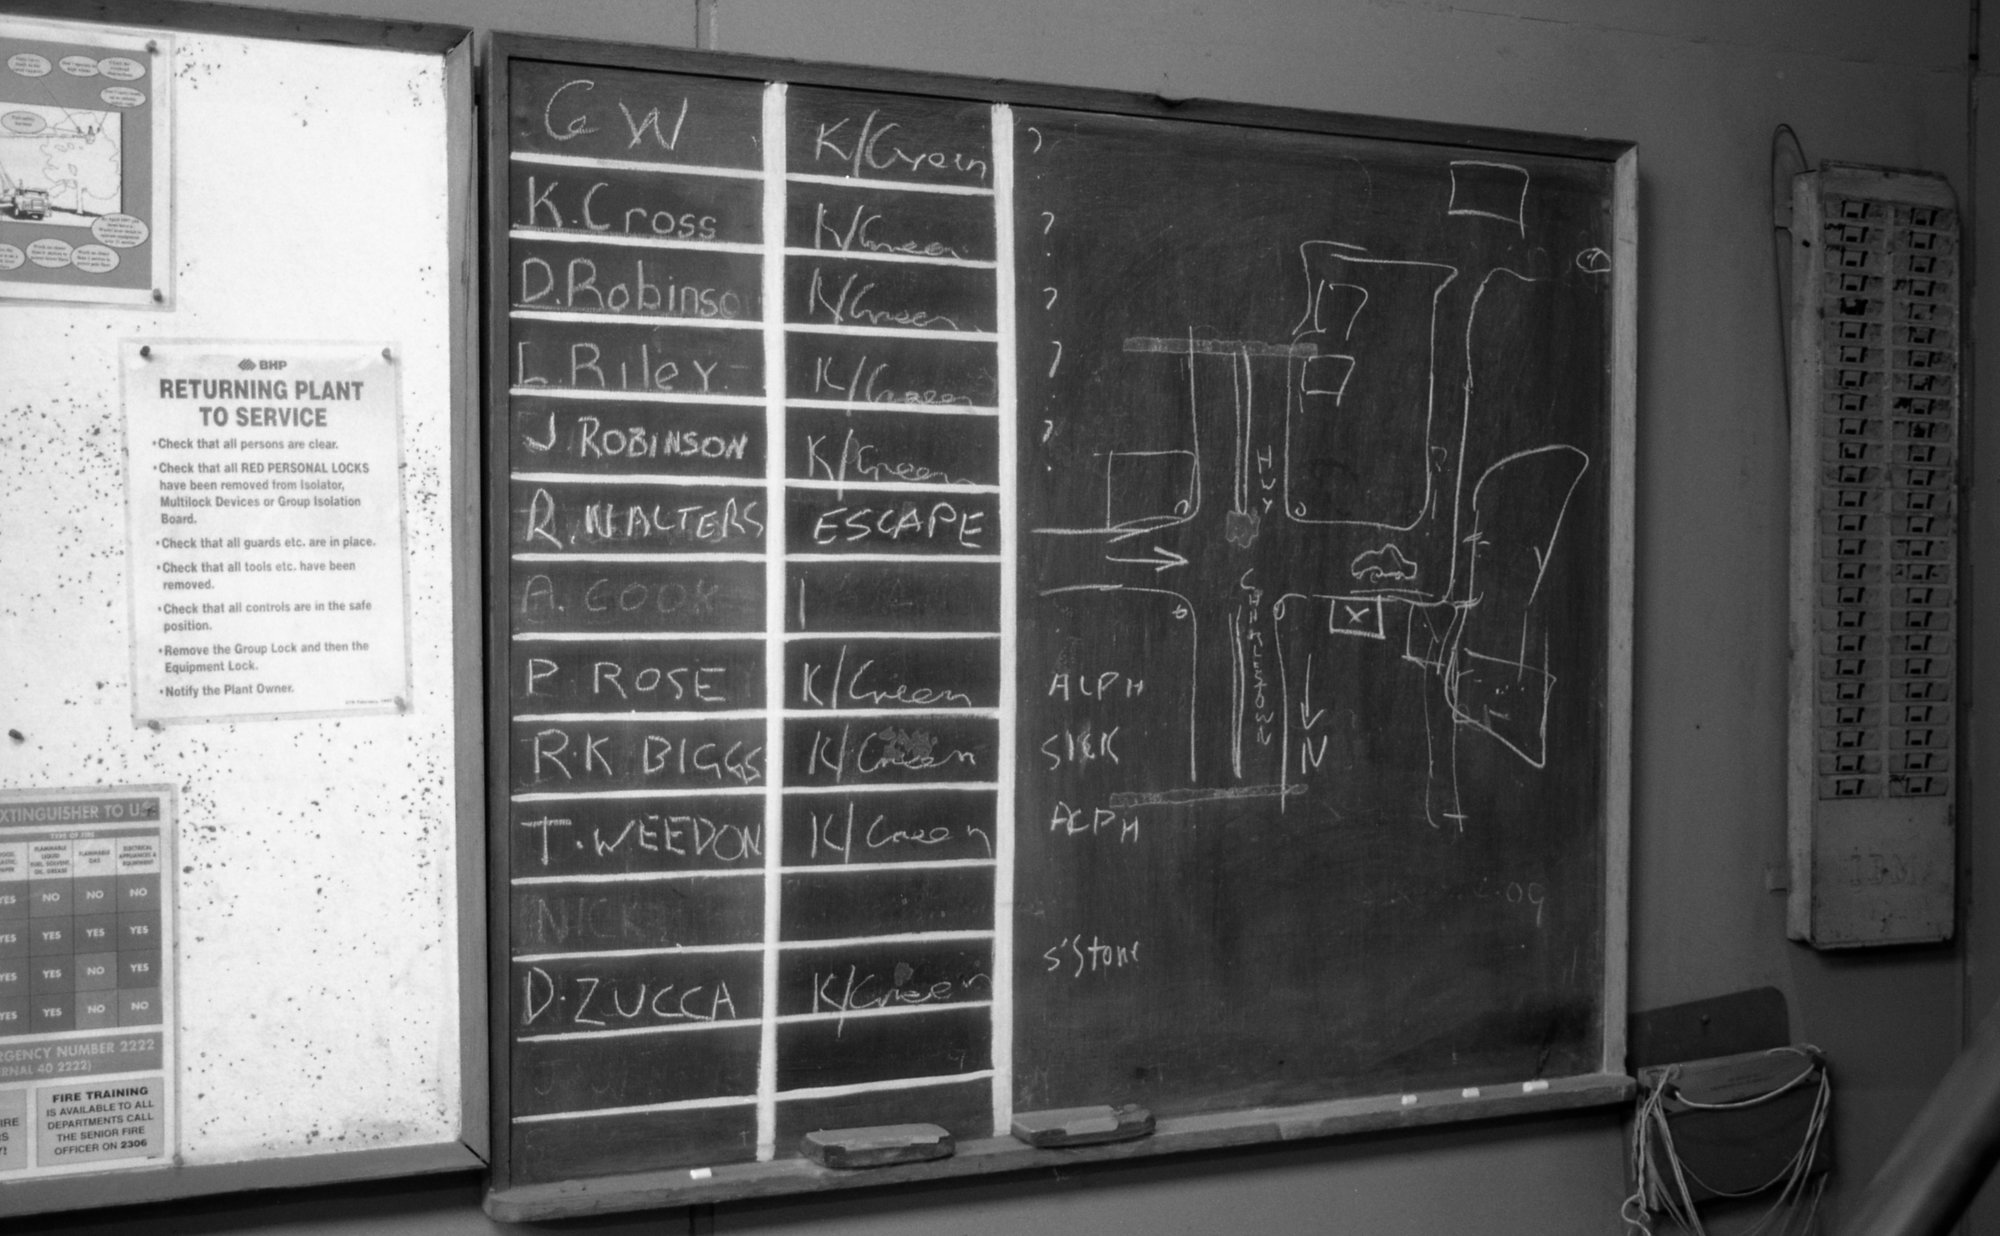 BHP
RETURNING PLANT
TO SERVICE
•Check that all persons are clear.
•Check that all RED PERSONAL LOCKS
have been removed from Isolator,
Multilock Devices or Group Isolation
Board.
•Check that all guards etc. are in place.
•Check that all tools etc. have been
removed.
•Check that all controls are in the safe
position.
•Remove the Group Lock and then the
Equipment Lock.
•Notify the Plant Owner.
XTINGUISHER TO U
TYPE OF FIRE
FLAMMABLE LIQUID
FLAMMABLE GAS
ELECTRICAL
YES NO NO NO
YES YES YES YES
YES YES NO YES
YES YES NO NO
RGENCY NUMBER 2222
RNAL 40 2222)
FIRE TRAINING
IS AVAILABLE TO ALL
DEPARTMENTS CALL
THE SENIOR FIRE
OFFICER ON 2306
G W K/Green ?
K. Cross K/Green ?
D. Robinso K/Green ?
L. Riley K/Green ?
J ROBINSON K/Green ?
R. WALTERS ESCAPE
A. COOK
P. ROSE K/Green ALPH
R.K BIGGS K/Green SICK
T. WEEDON K/Green ALPH
NICK
D. ZUCCA K/Green S'Stone
HWY
X
N
09